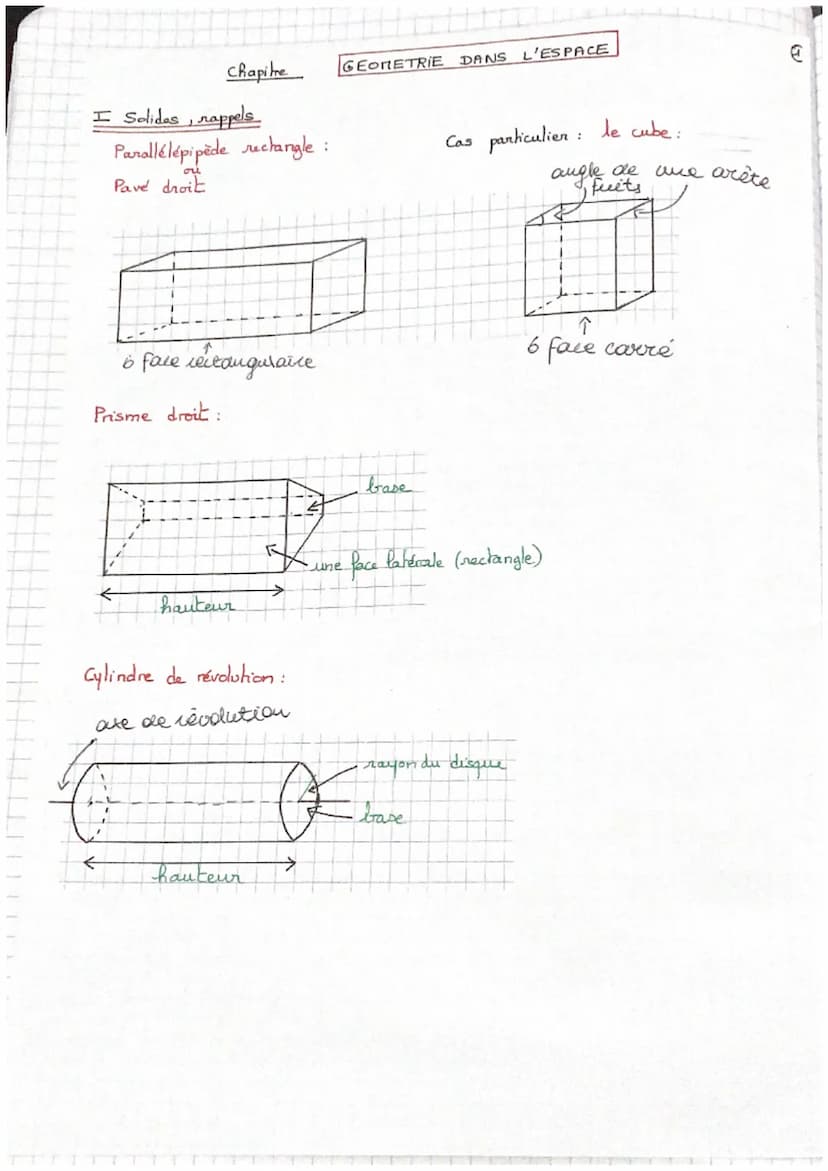 Chapitre
GEOMETRIE DANS L'ESPACE
I Solides, rappels
Parallélépipède rectangle :
ou
Pavé droit
Cas particulier : le cube :
angle de
fuits
une arète
6 face rectangulaire
6 face carré
Prisme droit :
base
une face latérale (rectangle)
hauteur
Cylindre de révolution :
axe de révolution
rayon du disque
base
hauteur